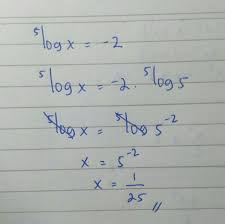 ⁵log x = -2
⁵log x = -2 . ⁵log 5
⁵log x = ⁵log 5⁻²
x = 5⁻²
x = 1/25 //